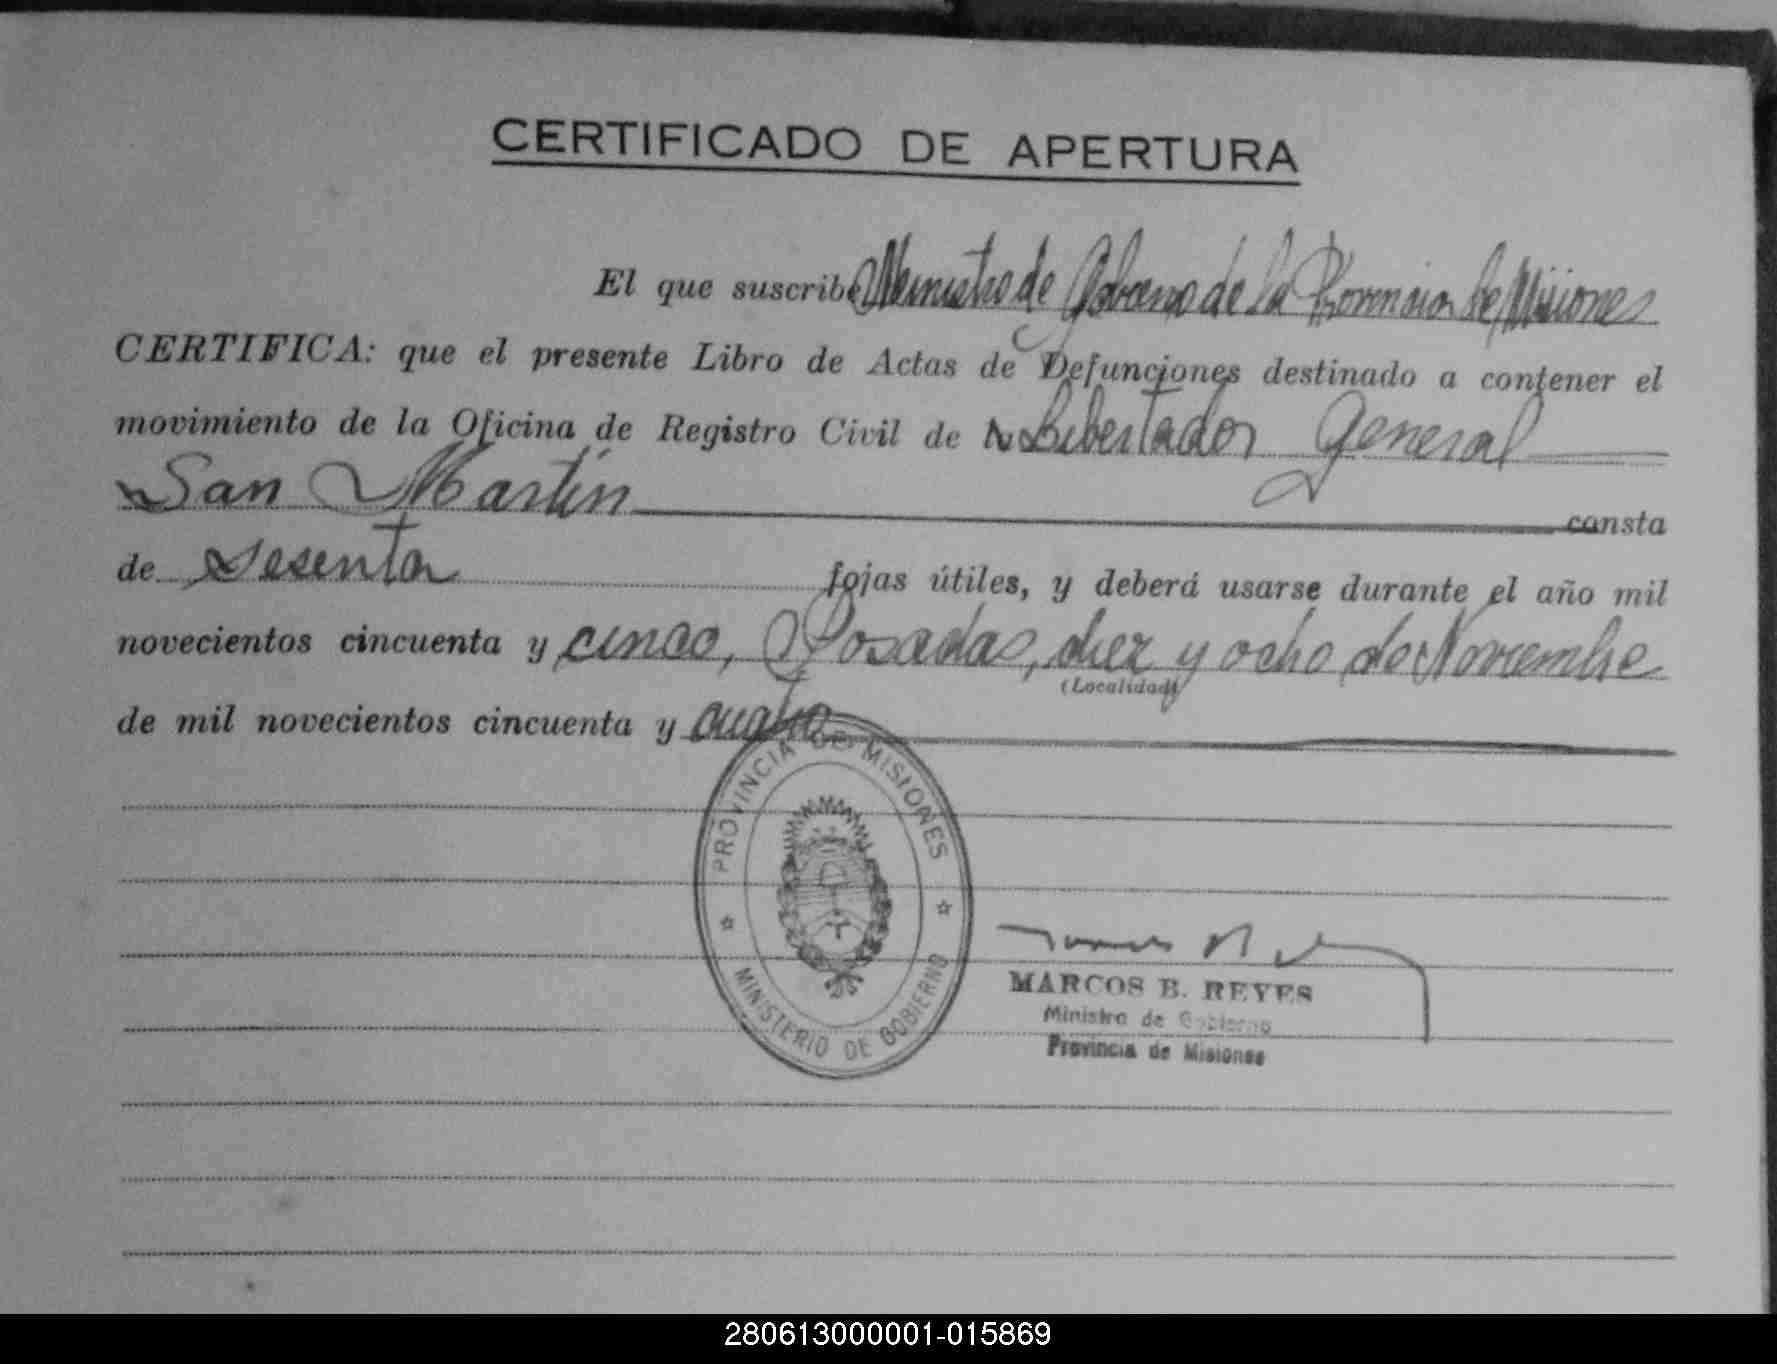 CERTIFICADO DE APERTURA
El que suscribe Ministro de Gobierno de la Provincia de Misiones
CERTIFICA: que el presente Libro de Actas de Defunciones destinado a contener el
movimiento de la Oficina de Registro Civil de Libertador General
San Martín consta
de Sesenta fojas útiles, y deberá usarse durante el año mil
novecientos cincuenta y cinco, Posadas, diez y ocho de Noviembre
(Localidad)
de mil novecientos cincuenta y cuatro
PROVINCIA DE MISIONES
MINISTERIO DE GOBIERNO
MARCOS B. REYES
Ministro de Gobierno
Provincia de Misiones
280613000001-015869